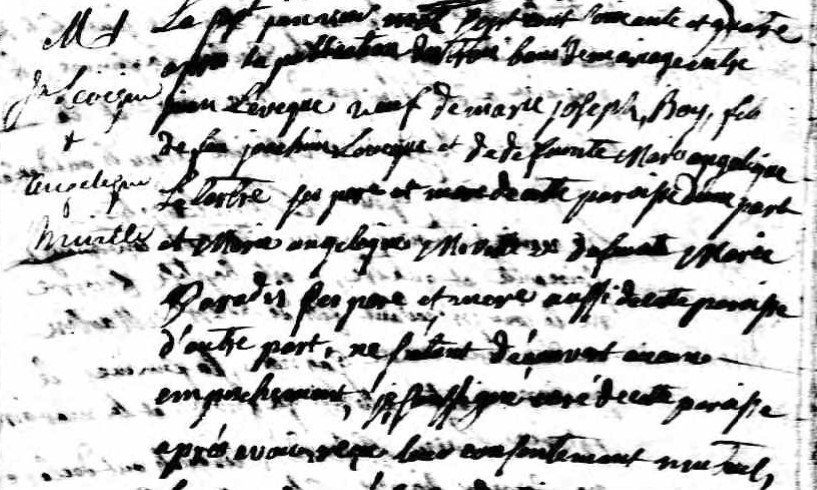 M
Le sept janvier mil sept cent soixante et quatre
après la publication de trois bans de mariage entre
jean Leveque veuf de marie joseph Roy, fils
de feu joachim Leveque et de defunte Marie angelique
ses pere et mere de cette paroisse d'une part
et Marie angelique Miville de defunte Marie
Paradis ses pere et mere aussi de cette paroisse
d'autre part, ne s'étant découvert aucun
empeschement, je soussigné curé de cette paroisse
après avoir reçu leur consentement mutuel,
Levêque
+
Angelique
Miville